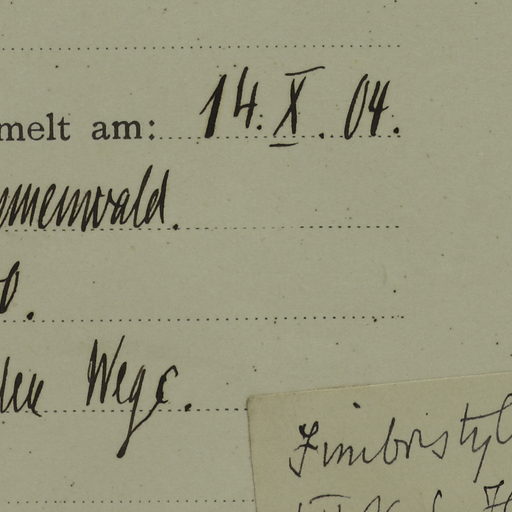 melt am: 14. X. 04.
menwald.
o.
den Wege.
Fimbristyl